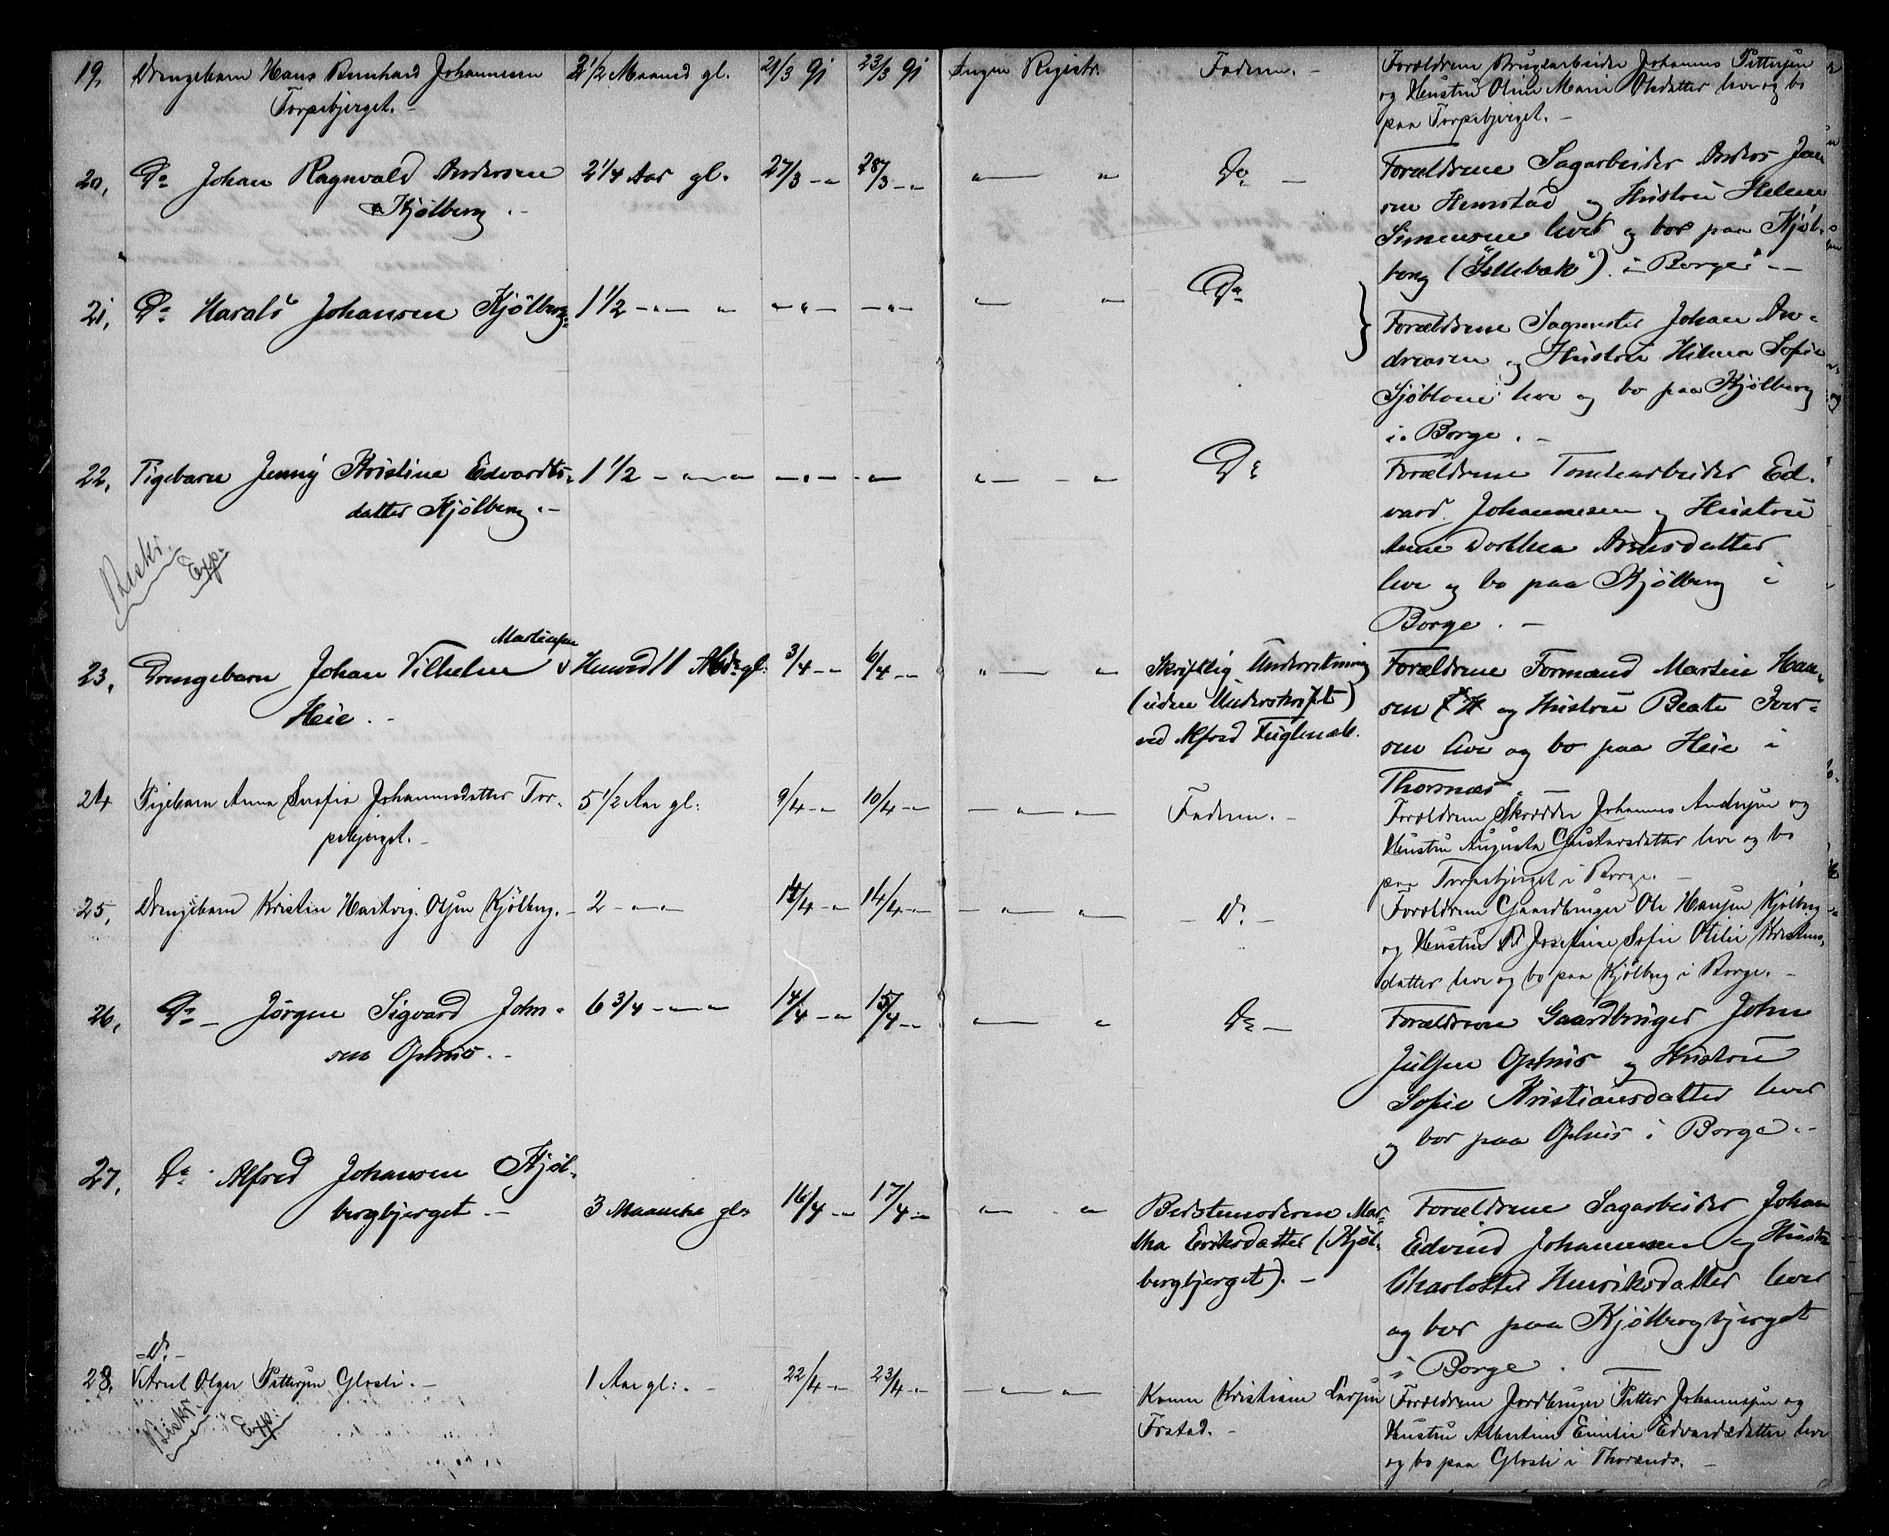 19, Drengebarn Hans Bernhard Johannesen 2 1/2 Maaned gl. 21/3 91 23/3 91 Ingen Registr. Faderen. – Forældrene Brugsarbeider Johannes Pettersen
Torpebjerget. – og Hustru Oline Marie Olsdatter leve og bo
paa Torpebjerget. –
20, Do Johan Ragnvald Andersen 2 1/4 Aar gl. 27/3 – „ 28/3 – „ „ — „ Do – Forældrene Sagarbeider Anders Jan
Kjølberg. – sen Hemstad og Hustru Helene
Simensen lever og bor paa Kjøl-
berg (Sillebæk) i Borge. –
21, Do Harald Johansen Kjølberg. 1 1/2 – „ – „ – „ – – „ – „ — „ Do } Forældrene Sagmester Johan An-
dreasen og Hustru Hilma Sofie
Sjöblom leve og bo paa Kjølberg
i Borge. –
22, Pigebarn Jenny Kristine Edvardts- 1 1/2 – „ – „ – – „ – – „ – „ – – „ Do Forældrene Tomtearbeider Ed-
datter Kjølberg. – vard Johannesen og Hustru
Beskr. Exp. Anne Dorthea Arnsdatter
leve og bo paa Kjølberg i
Borge. –
Martinsen
23, Drengebarn Johan Vilhelm Henved 11 Mdr gl. 3/4 – „ 6/4 – „ „ — „ Skriftlig Underretning Forældrene Formand Martin Han-
Heie. – (uden Underskrift) sen og Hustru Beate Iver-
ved Alfred Fuglenæb. sen leve og bo paa Heie i
Thorsnæs. –
24 Pigebarn Anna Serafia Johannesdatter Tor- 5 1/2 Aar gl: 9/4 – „ 10/4 – „ – „ – „ Faderen. – Forældrene Skrædder Johannes Andersen og
pebjerget. – Hustru Augusta Gustavsdatter leve og bo
paa Torpebjerget i Borge. –
25, Drengebarn Kristin Hartvig Olsen Kjølberg. – 2 – „ – „ 14/4 – „ 14/4 – „ – „ – „ – Do – Forældrene Gaardbruger Ole Hansen Kjølberg
og Hustru Josefine Sofie Otilie Kristens-
datter leve og bo paa Kjølberg i Borge. –
26, Do – Jørgen Sigvard John- 6 3/4 – „ – „ 14/4 – „ 15/4 – „ „ — „ Do – Forældrene Gaardbruger John
sen Ophus. – Julsen Ophus og Hustru
Sofie Kristiansdatter lever
og bor paa Ophus i Borge. –
27, Do Alfred Johansen Kjøl- 3 Maaneder gl. 16/4 – „ 17/4 – „ „ – „ Bedstemoderen Mar- Forældrene Sagarbeider Johan
bergbjerget. – tha Eriksdatter (Kjøl- Edvind Johannesen og Hustru
bergbjerget). – Charlotte Henriksdatter lever
og bor paa Kjølbergbjerget
i Borge.
– Do –
28, Olger Pettersen Glosli. – 1 Aar gl: – 22/4 – „ 23/4 – „ – „ – „ Kone Kristiane Larsen Forældrene Jordbruger Petter Johannesen og
Beskr. Exp. Frstad. – Hustru Albertine Emilie Edvardsdatter leve
og bo paa Glosli i Thorsnæs. –